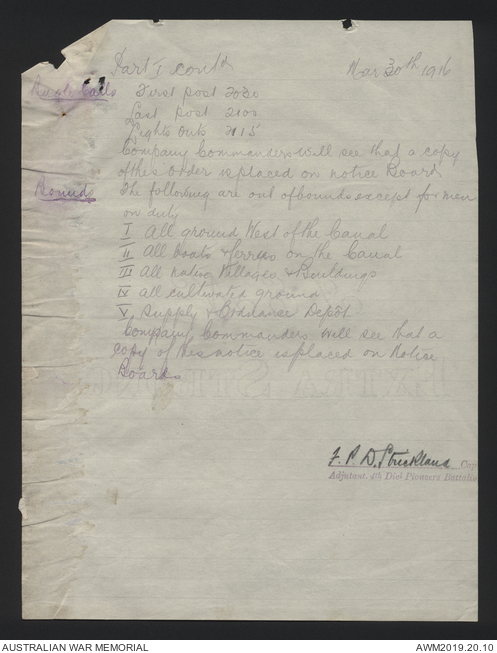 Part I contd Mar 30th 1916
Bugle Calls First post 2030
Last post 2100
Lights Outs 2115
Company Commanders will see that a copy
of this order is placed on notice Board
Bounds The following are out of bounds except for men
on duty
I All ground West of the Canal
II All boats & ferries on the Canal
III All native Villages & Buildings
IV All cultivated ground
V Supply & Ordnance Depôt
Company Commanders will see that a
copy of this notice is placed on Notice
Board.
F. P. D. Strickland Cap
Adjutant. 4th Divl Pioneers Battalio
AUSTRALIAN WAR MEMORIAL AWM2019.20.10